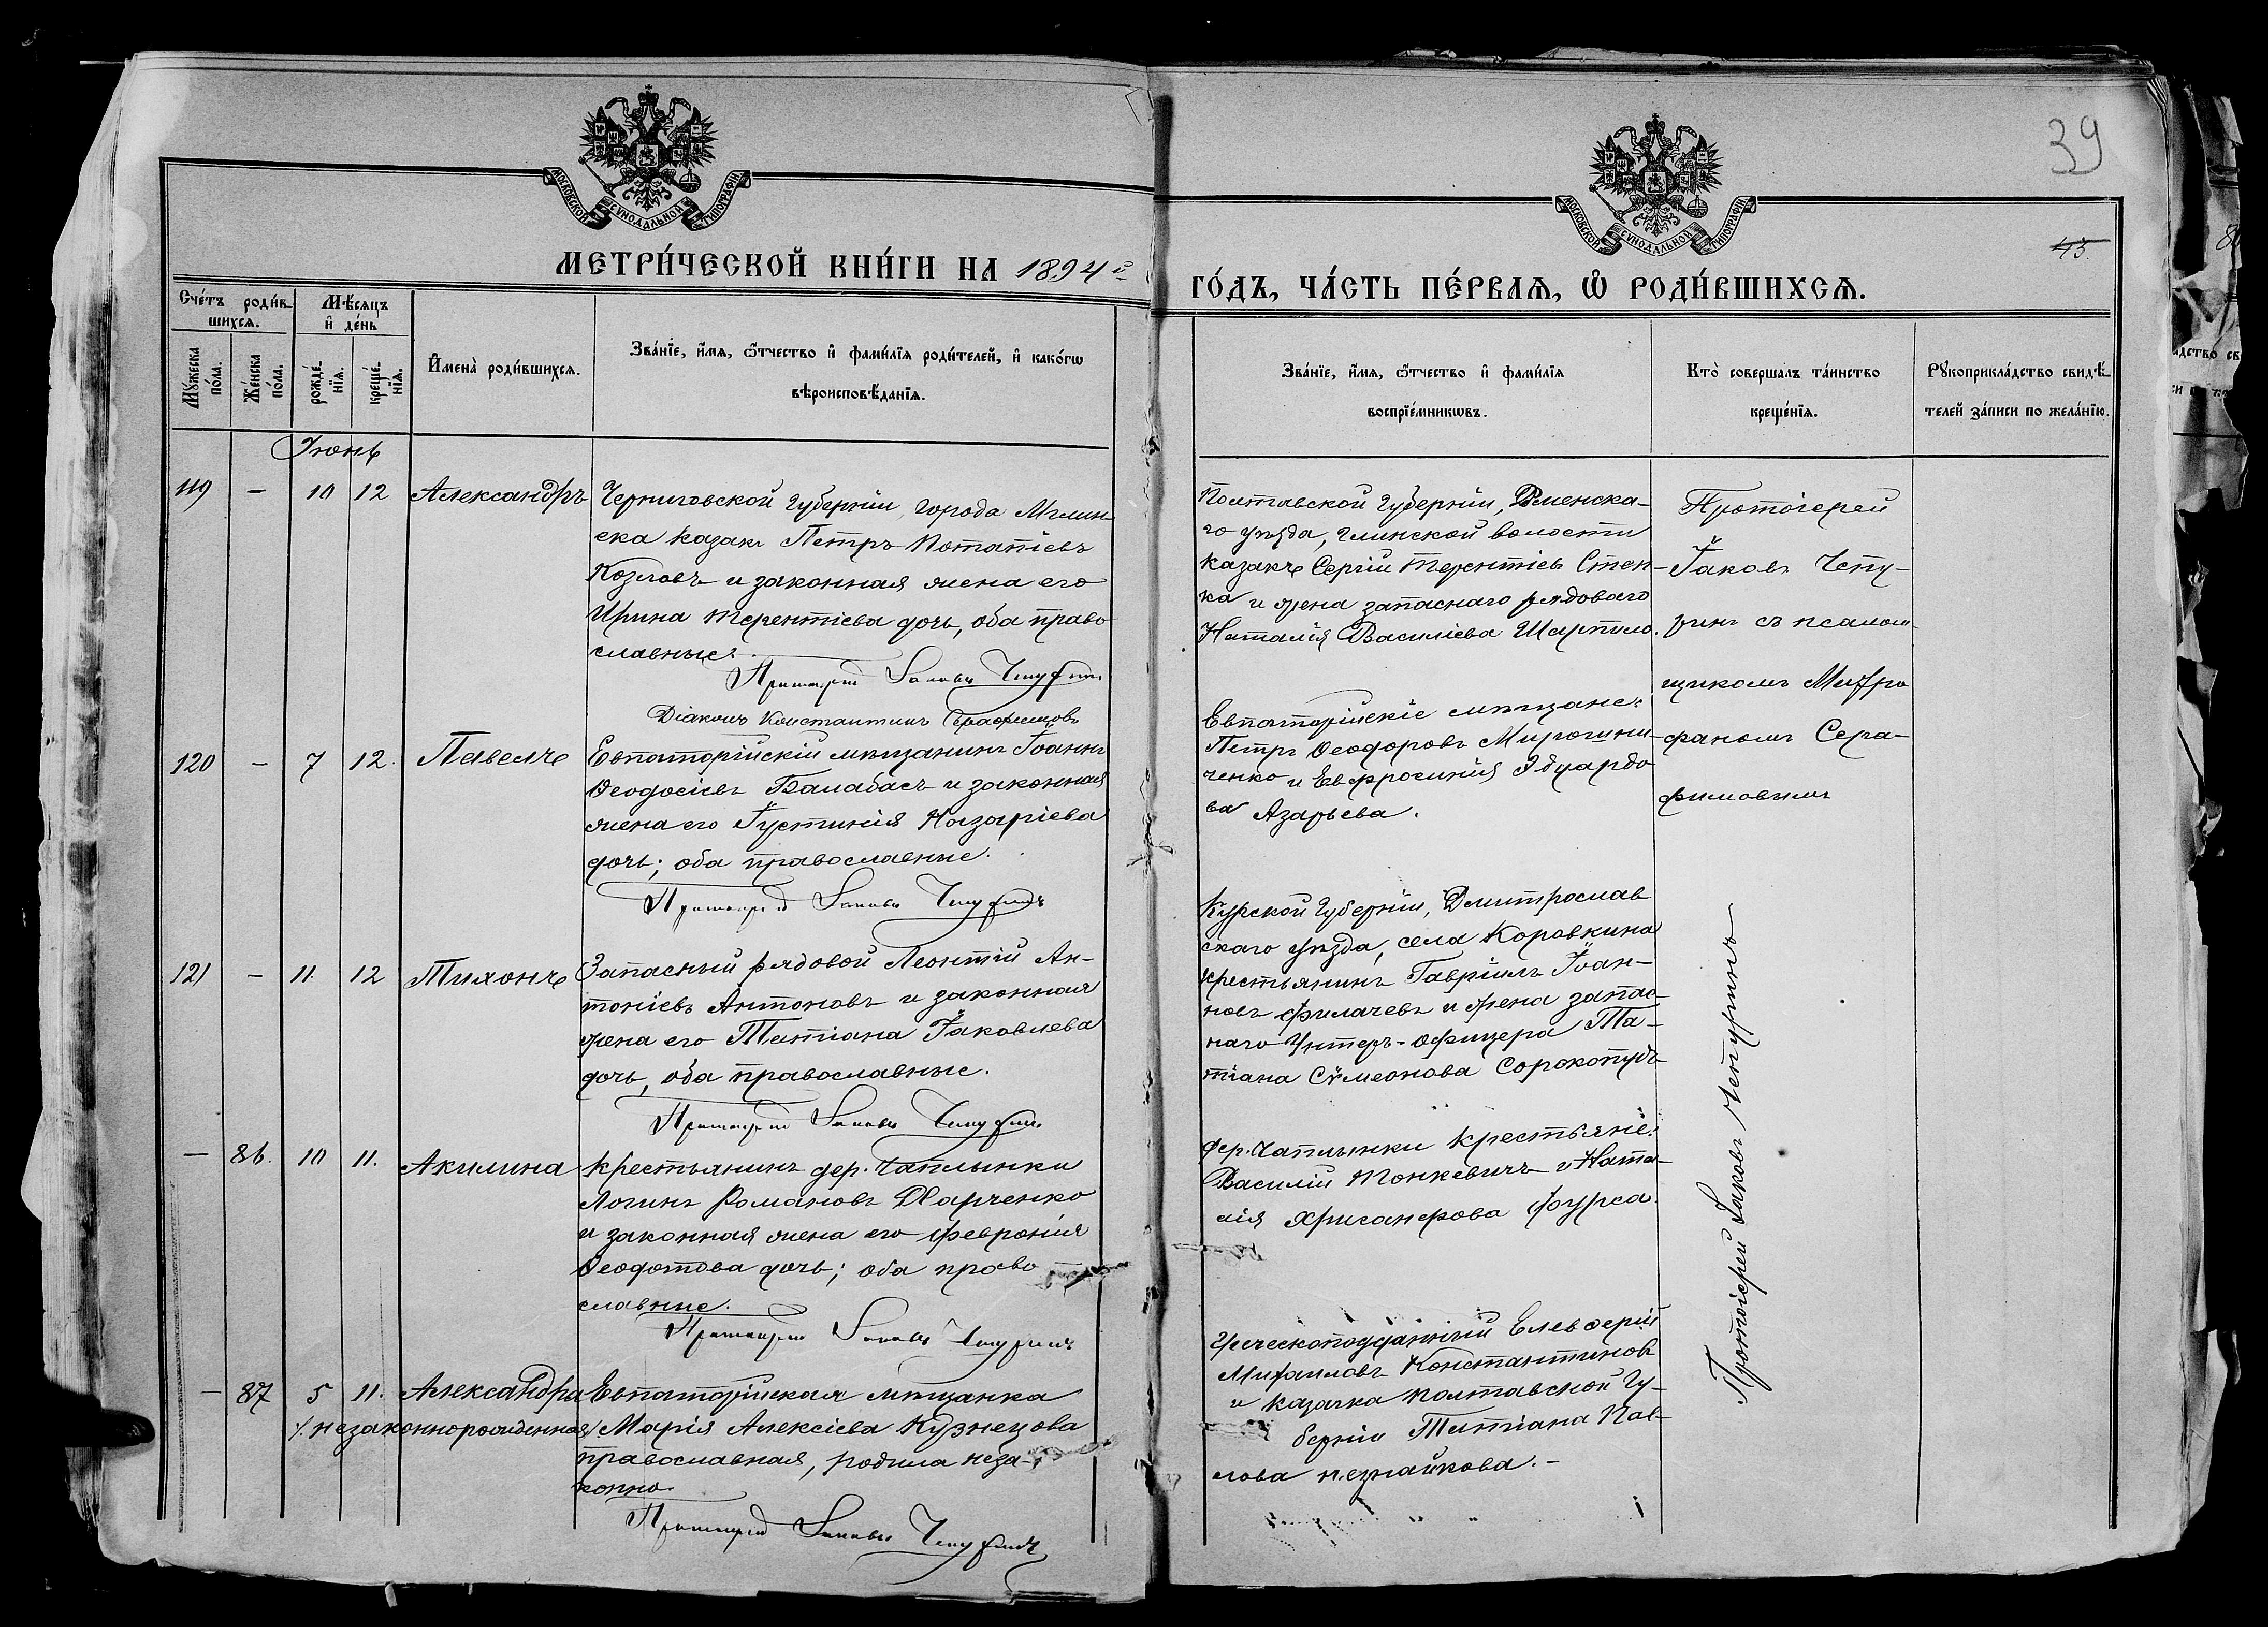 39
43.
МОСКОВСКОЙ СѴНОДАЛЬНОЙ ТИПОГРАФІИ
МОСКОВСКОЙ СѴНОДАЛЬНОЙ ТИПОГРАФІИ
МЕТРИ́ЧЕСКОЙ КНИ́ГИ НА 1894й
ГО́ДЪ, ЧА́СТЬ ПЕ́РВАѦ, Ѡ РОДИ́ВШИХСѦ.
Сче́тъ роди́в-
шихсѧ.
Мꙋжеска по́ла.
Же́нска по́ла.
Мѣ́сяцъ
и҆ де́нь
рожде́-
нїѧ.
креще́-
нїѧ.
И҆мена̀ роди́вшихсѧ.
Зва́нїе, и҆́мѧ, ѻ҆́тчество и҆ фами́лїѧ роди́телей, и҆ како́гѡ
вѣроисповѣ́данїѧ.
Зва́нїе, и҆́мѧ, ѻ҆́тчество и҆ фами́лїѧ
воспрїе́мникѡвъ.
Кто̀ совершалъ та́инство
креще́нїѧ.
Рꙋкоприкла́дство свидѣ́-
телей за́писи по жела́нїю.
Іюнь
119 — 10 12 Александръ
Черниговской губерніи, города Мглин-
ска казакъ Петръ Потапіевъ
Козловъ и законная жена его
Ирина Терентіева дочь, оба право
славные.
Протоіерей Іаковъ Чепуринъ
Діаконъ Константинъ Серафимовъ
Полтавской губерніи, Роменска-
го уѣзда, Глинской волости
казакъ Сергій Терентіевъ Степ-
ка и жена запаснаго рядоваго
Наталія Василіева Шарпило.
Протоіерей
Іаковъ Чепу-
ринъ съ псалом-
щикомъ Митро
фаномъ Сера-
фимовымъ
120 — 7 12. Павелъ
Евпаторійскій мѣщанинъ Іоаннъ
Ѳеодосіевъ Балабасъ и законная
жена его Іустинія Назаріева
дочь; оба православные.
Протоіерей Іаковъ Чепуринъ
Евпаторійскіе мѣщане:
Петръ Ѳеодоровъ Мирошни-
ченко и Евфросинія Эдуардо
ва Азарьева.
121 — 11. 12 Тихонъ
Запасный рядовой Леонтій Ан-
тоніевъ Антоновъ и законная
жена его Татіана Іаковлева
дочь, оба православные.
Протоіерей Іаковъ Чепуринъ
Курской губерніи, Дмитрослав
скаго уѣзда, села Коровкина
крестьянинъ Гавріилъ Іоан-
новъ Филачевъ и жена запас-
наго Унтеръ-офицера Та-
тіана Сѵмеонова Сорокопудъ
— 86. 10 11. Акилина
Крестьянинъ дер. Чаплынки
Логинъ Романовъ Харченко
и законная жена его Февронія
Ѳеодотова дочь; оба право
славные.
Протоіерей Іаковъ Чепуринъ
дер. Чаплынки крестьяне:
Василій Понкевичъ и Ната-
лія Хрисанфова Фурса.
— 87 5 11. Александра
/незаконнорожденная/
Евпаторійская мѣщанка
Марія Алексіева Кузнецова
православная, родила неза-
конно.
Протоіерей Іаковъ Чепуринъ
Греческоподданный Елевѳерій
Михаиловъ Константиновъ
и казачка Полтавской Гу-
берніи Татіана Пав-
лова Незнайкова. -
Протоіерей Іаковъ Чепуринъ